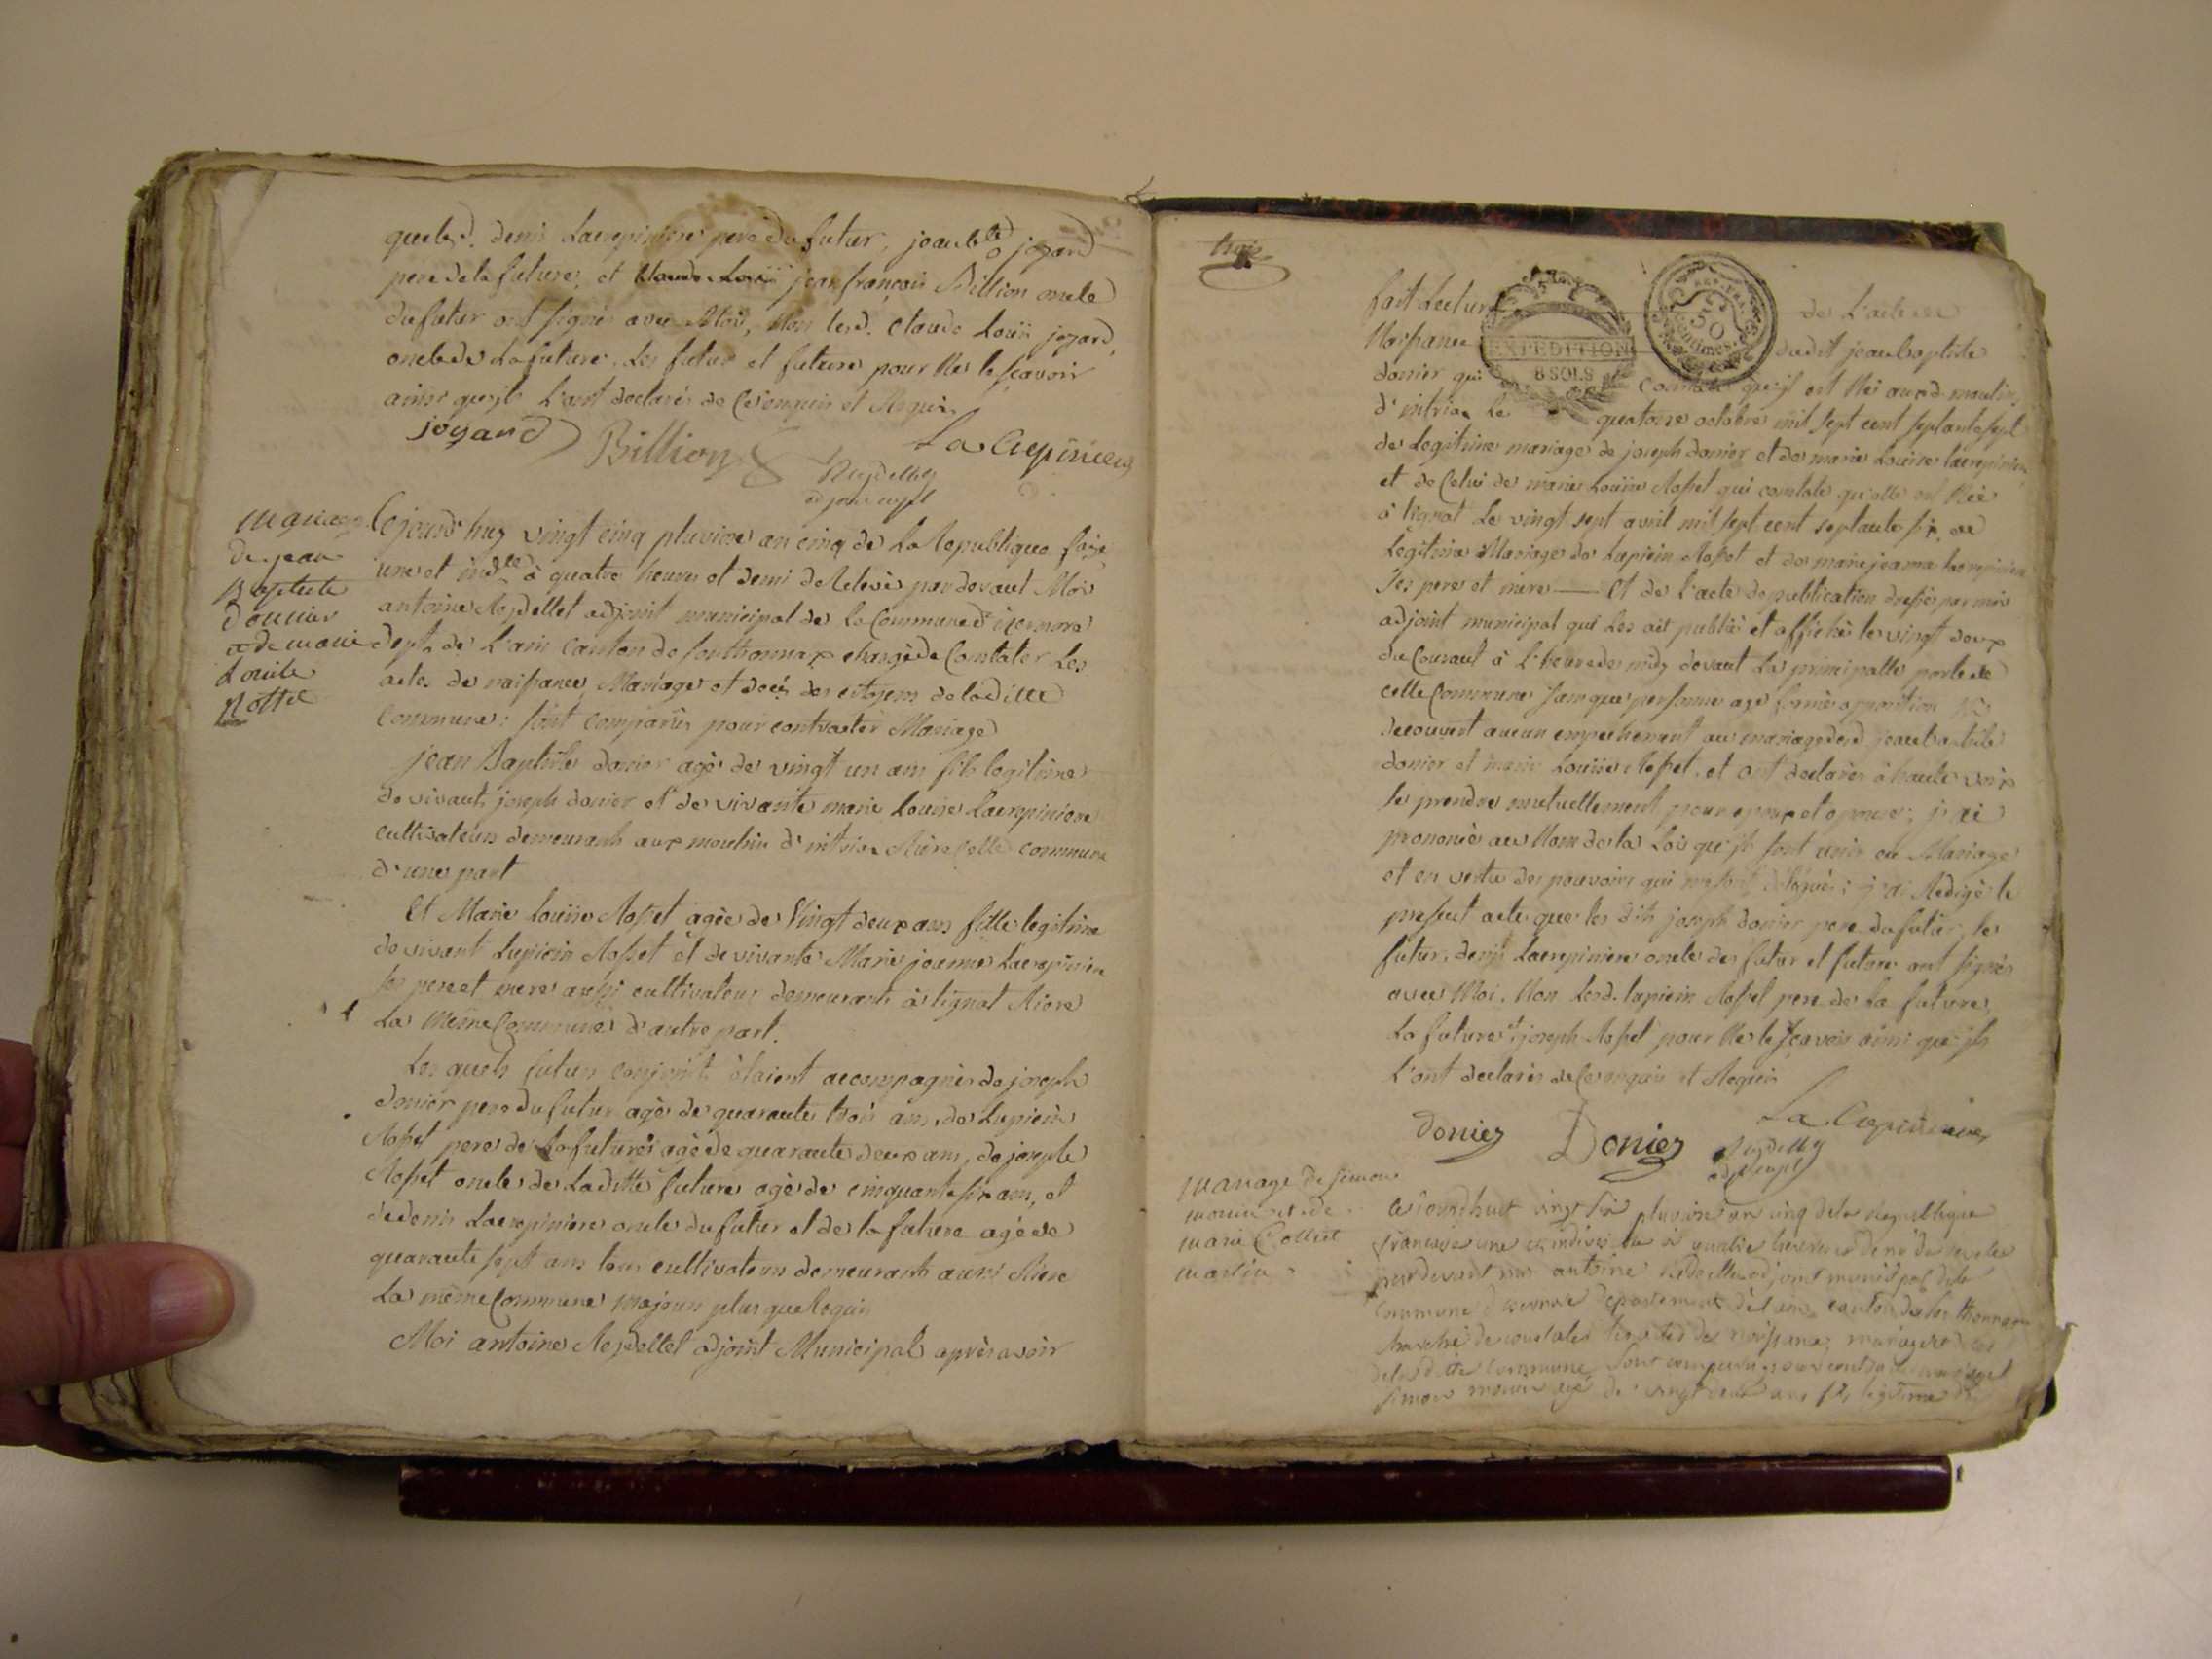 que les d. denis Lacrepiniere pere du futur, jean Bte joyard
pere de la future, et jean françois Billion oncle
du futur ont signés avec Moi, Non les d. Claude Louis joyard
oncle de La future, Les futur et future pour Ne le sçavoir
ainsi quejls L'ont declarés de Ce enquis et Requis
joyard Billion La Crepiniere
Reydellet
adjoint mpl
mariage
de jean
Baptiste
Donnier
et de marie
Louise
Rosset
Cejourd'huy vingt cinq pluviose an cinq de La Republique fçaise
une et indle à quatre heures et demi de Relevée par devant Moi
antoine Reydellet adjoint municipal de la Commune d'izernore
dept. de L'ain Canton de sonthonnax chargé de Constater Les
actes de naissance, Mariage et décés des citoyens de laditte
Commune: sont comparus pour contracter Mariage
jean Baptiste donier agé de vingt un ans fils legitime
de vivant joseph donier et de vivante marie Louise Lacrepiniere
cultivateurs demeurants aux moulin d'intriaz Riere Celle commune
d'une part
Et Marie Louise Rosset agée de Vingt deux ans fille legitime
de vivant Lupicin Rosset et de vivante Marie jeanne Lacrepiniere
ses pere et mere aussi cultivateurs demeurants à tignat Riere
La même Commune d'autre part.
Les quels futurs conjoints étaient accompagnés de joseph
donier pere du futur agé de quarante trois ans, de Lupicin
Rosset pere de La future agé de quarante deux ans, de joseph
Rosset oncle de Laditte future agé de cinquante six ans, et
de denis Lacrepiniere oncle du futur et de la future agé de
quarante sept ans tous cultivateurs demeurants aussi Riere
La même Commune majeurs plus que Requis
Moi antoine Reydellet adjoint Municipal après avoir
trois
EXPEDITION
8 SOLS
50
Centimes
REP. FRA.
fait Lecture de L'acte de
Naissance dudit jean baptiste
donier qui Constate qu'il est Né auxd. moulin
d'intriaz Le quatorze octobre mil sept cent septante sept
de Legitime mariage de joseph donier et de marie Louise lacrepiniere
et de Celui de marie Louise Rosset qui constate qu'elle est Née
à tignat Le vingt sept avril mil sept cent septante six, de
Legitime Mariage de Lupicin Rosset et de marie jeanne lacrepiniere
ses pere et mere — Et de l'acte de publication dressé par moi
adjoint municipal qui Les ait publié et affiché le vingt deux
du Courant à L'heure de midy devant La principalle porte de
celle Commune sans que personne aye formé opposition
decouvert aucun empechement au mariage desd. jean baptiste
donier et marie Louise Rosset, et ont declarés à haute voix
se prendre mutuellement pour epoux et epouse; j'ai
prononcé au Nom de la Loi qu'jls sont unis en Mariage
et en vertu des pouvoirs qui me sont délégués; j'ai Redigé le
present acte que les dits joseph donier pere du futur, le
futur, denis Lacrepiniere oncle des futur et future ont signés
avec Moi, Non Les d. lupicin Rosset pere de La future,
La future et joseph Rosset pour Ne le sçavoir ainsi que jls
L'ont declarés de Ce enquis et Requis
donier Donier La Crepiniere
Reydellet
adj mpl
mariage de Simon
et de
marie Collet
martin
Ce jourdhuit vingt six pluviose an cinq dela Republique
francaise une et indivisible à quatre heures et demi de relevée
pardevant moi antoine Reydellet adjoint municipal dela
Commune d'izernore departement de l'ain canton de sonthonnax
chargé de constater les actes de naissance, mariage et decès
delad itte Commune sont comparus pour contracter mariage
Simon agé de vingt deux ans fils legitime de